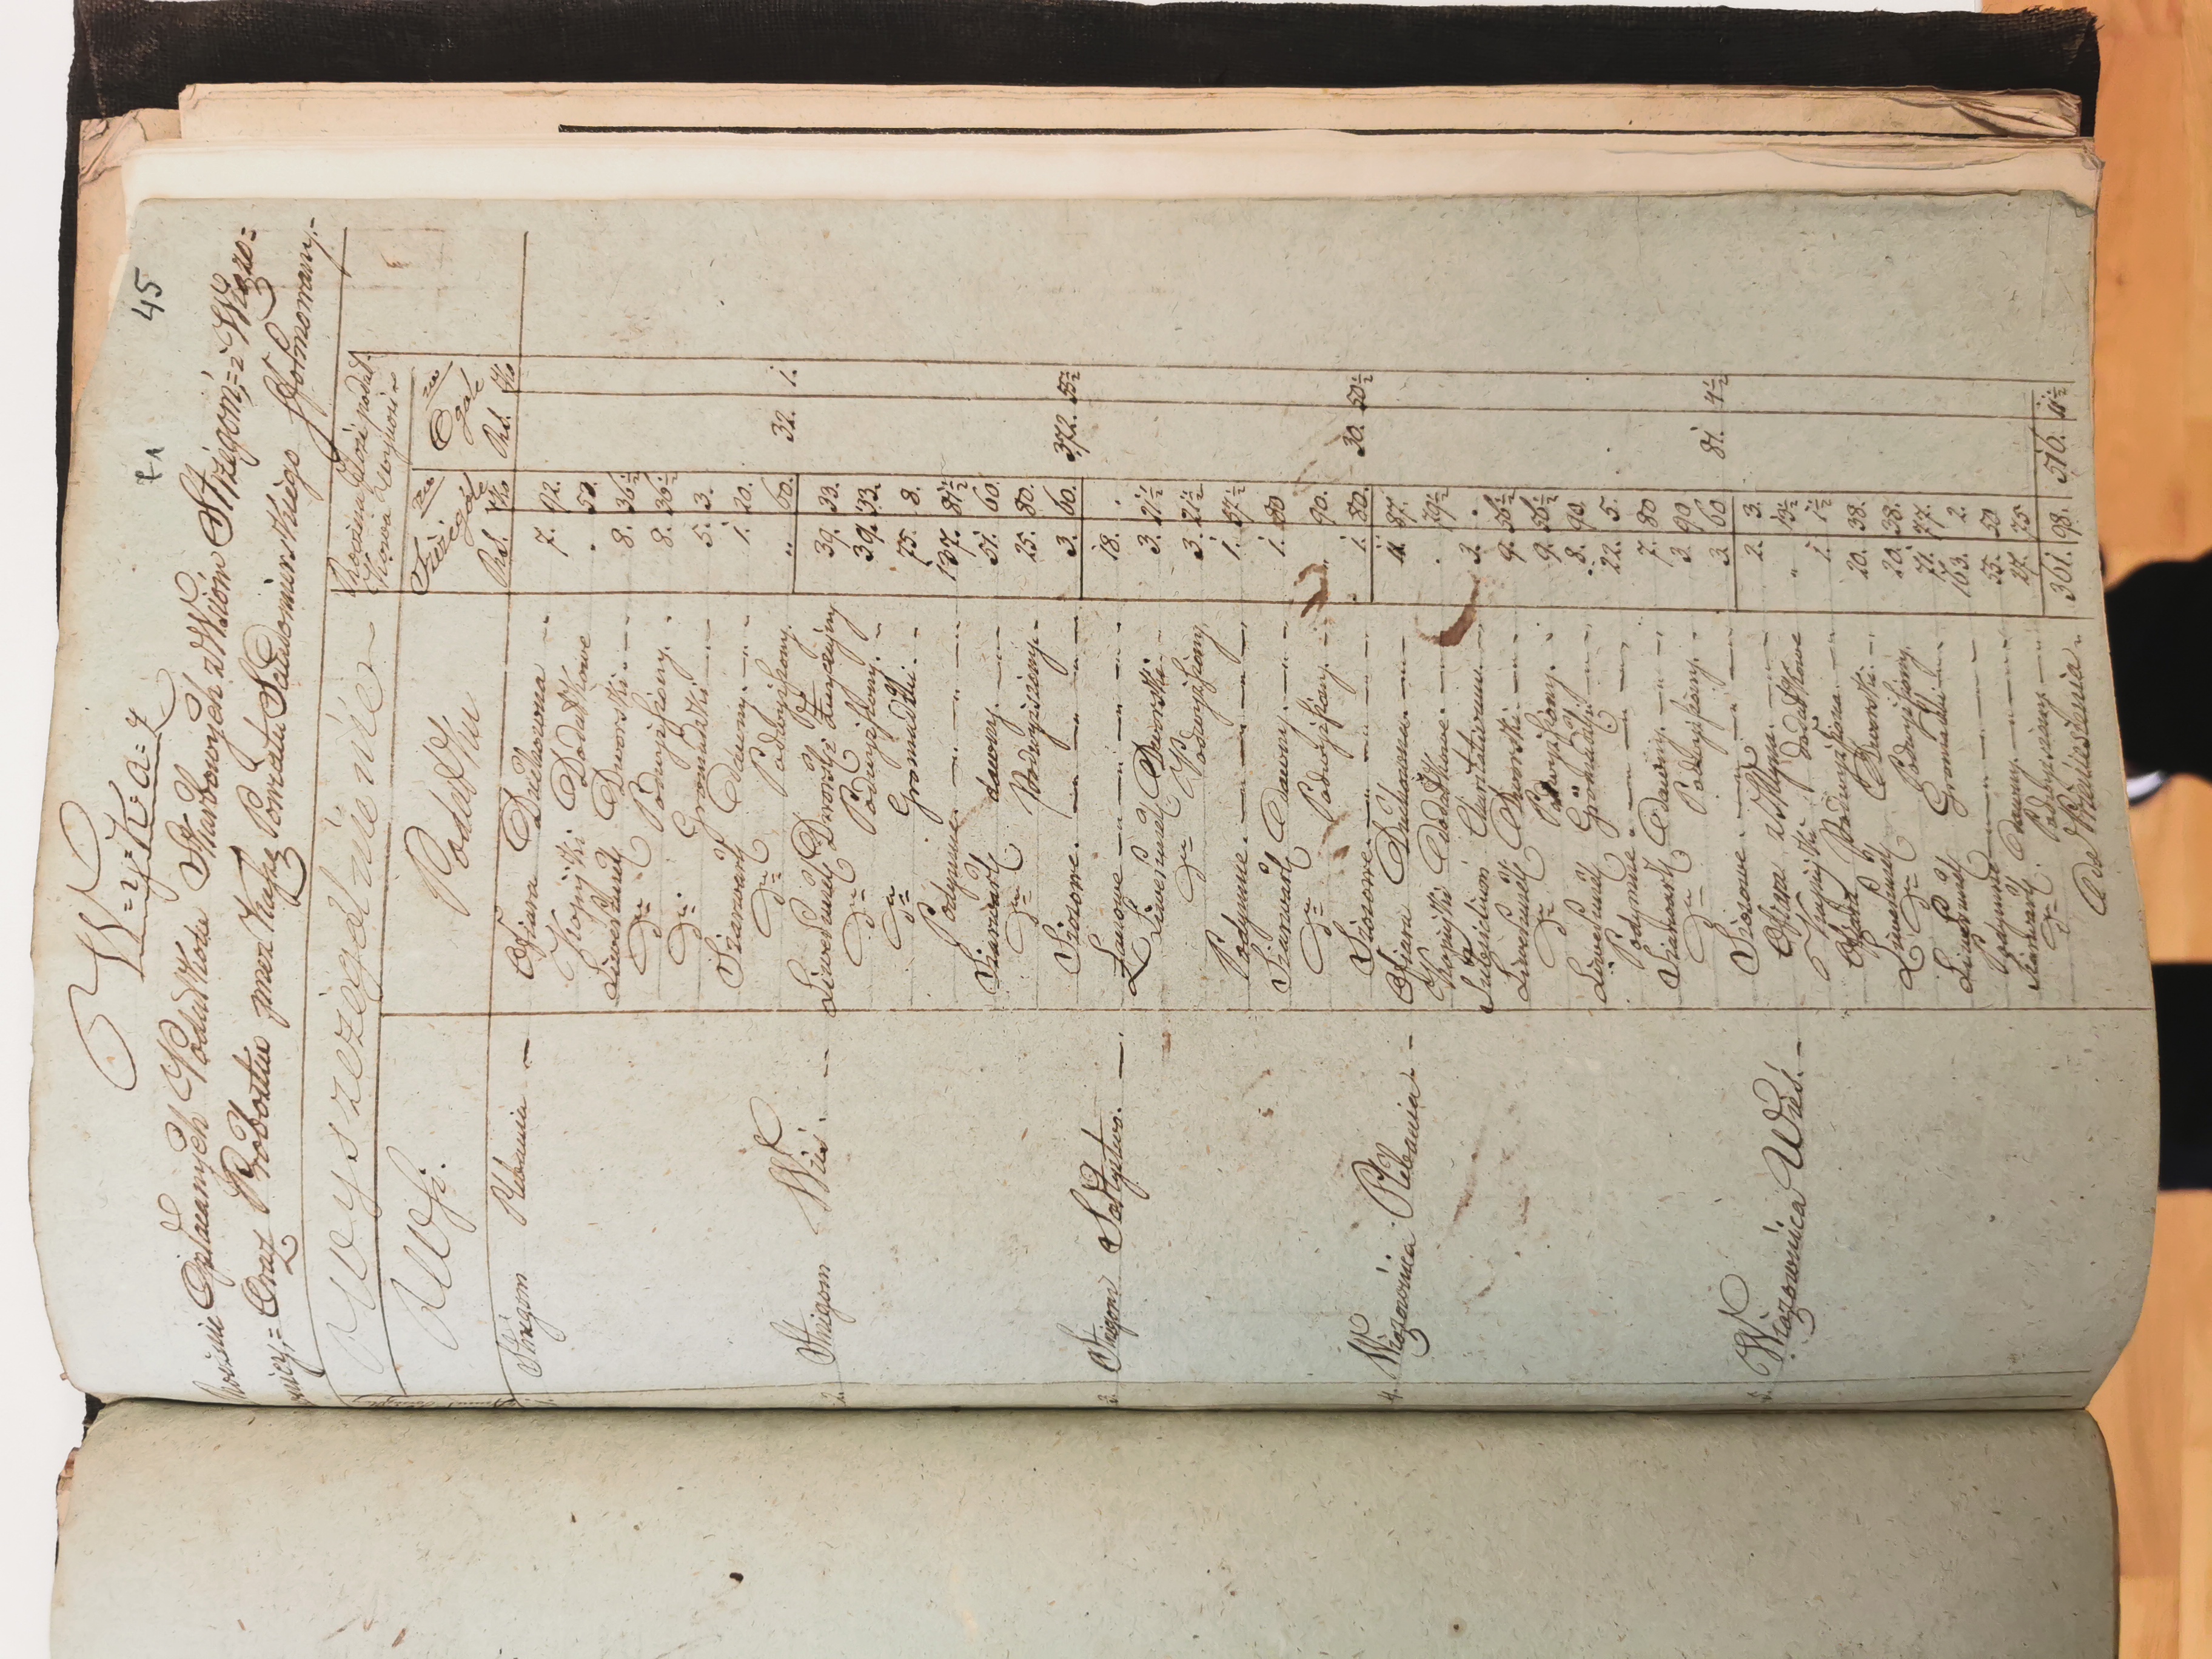 45
Wyka=z
Rocznie Opłacanych Podatków Skarbowych z Wsiów Strzegom,= i Wiązo=
wnicy,= Oraz Probostw przez Kassę Powiatu Sandomierskiego Sformowany.-
Wyszczegulnienie
Roczna Ilość podat
kowa wynosi
Wsi.
Podatku
Szczegule
Ogule
Rsl. Ko
Rsl. Ko
1. Strzegom Plebania — Ofiara Duchowna — 7. 92.
Kopytki Dodatkowe . 50.
Liwerunek Dworski — 8. 36½
Do= Podwyższony. 8. 36½
Do= Gromadzki — 5. 3.
Szarwark Dawny — 1. 20.
Do= Podwyższony. „ 60. 32. 1.
2. Strzegom Wieś — Liwerunek Dworski Zwyczajny 39. 33.
Do= Podwyższony. — 39. 33.
Do= Gromadzki — 75. 8.
Podymne — 137. 81½
Szarwark dawny — 51. 60.
Do= Podwyższony — 25. 80.
Sziosowe. — 3. 60. 372. 55½
3. Strzegom Sołtystwo. — Łanowe — 18. .
Liwerunek Dworski — 3. 21½
Do= Podwyższony 3. 21½
Podymne. — 1. 37½
Szarwark Dawny. — 1. 80
Do= Podwyższony. — . 90.
Sziosowe — 1. 80. 30. 50½
4. Wiązownica Plebania — Ofiara Duchowna — 11. 87.
Kopytki Dodatkowe — . 79½
Subsidium Charitativum 3. .
Liwerunek Dworski — 9. 56½
Do= Podwyższony. 9. 56½
Liwerunek Gromadzki — 8. 90.
Podymne — 22. 5.
Szarwark Dawny — 7. 80
Do= Podwyższony. 3. 90
Sziosowe. — 3. 60 81. 4½
5. Wiązownica Wieś. — Ofiara z Młyna — 2. 3.
Kopytki Dodatkowe „ 13½
Ofiara Podwyższona — 1. 1½
Liwerunek Dworski — 20. 38.
Do= Podwyższony 20. 38.
Liwerunek Gromadzki — 71. 77.
Podymne — 163. 2.
Szarwark Dawny — 55. 50
Do= Podwyższony — 27. 75
Do Przeniesienia — 361. 98. 516. 11½